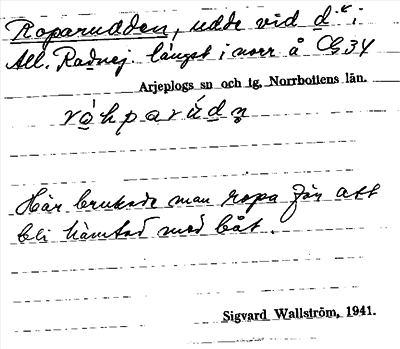 Roparudden, udde vid d:o i
All. Radnej längst i norr å G34
Arjeplogs sn och tg, Norrbottens län.
råhparúdn̥
Här brukade man ropa för att
bli hämtad med båt.
Sigvard Wallström, 1941.